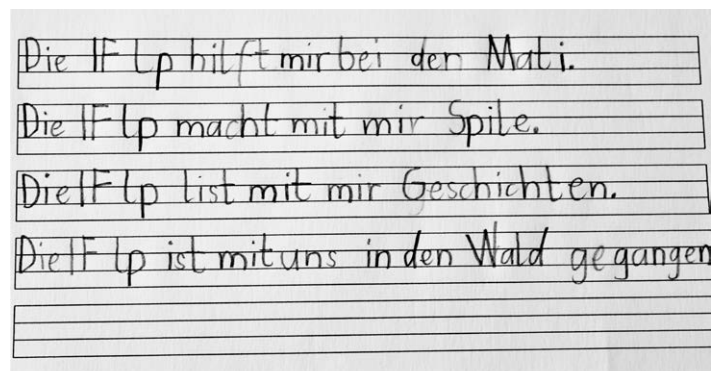 Die IF Lp hilft mir bei den Mati.
Die IF Lp macht mit mir Spile.
Die IF Lp list mit mir Geschichten.
Die IF Lp ist mit uns in den Wald gegangen